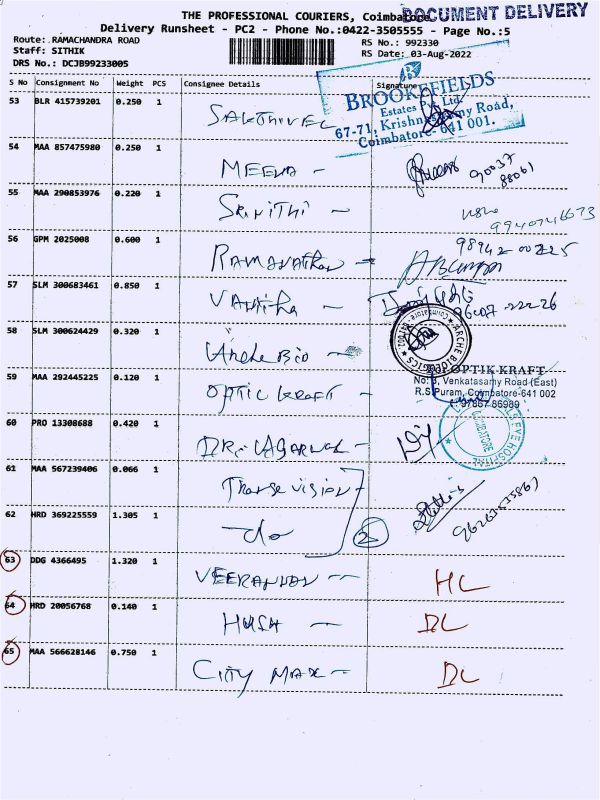 THE PROFESSIONAL COURIERS, Coimbatore
DOCUMENT DELIVERY
Delivery Runsheet - PC2 - Phone No.:0422-3505555 - Page No.:5
Route: RAMACHANDRA ROAD
RS No.: 992330
Staff: SITHIK
RS Date: 03-Aug-2022
DRS No.: DCJB99233005
S No Consignment No Weight PCS Consignee Details Signature
BROOKEFIELDS
Estates Pvt. Ltd.
67-71, Krishnasamy Road,
Coimbatore- 641 001.
53 BLR 415739201 0.250 1 SAKTHIVEL
54 MAA 857475980 0.250 1 MEENA -
90037
88061
55 MAA 290853976 0.220 1 SRINITHI -
56 GPM 2025008 0.600 1 RAMANATHAN -
57 SLM 300683461 0.850 1 VANITHA -
58 SLM 300624429 0.320 1 Arche Bio -
ARCHE BIOLOGICS
59 MAA 292445225 0.120 1 OPTIC KRAFT -
OPTIK KRAFT
No: 8, Venkatasamy Road (East)
R.S.Puram, Coimbatore-641 002
60 PRO 13308688 0.420 1 DR. AGARWAL -
EYE HOSPITAL
COIMBATORE
61 MAA 567239406 0.066 1 Thanse vision -
62 HRD 369225559 1.305 1 - do
2
63 DDG 4366495 1.320 1 HC
64 HRD 20056768 0.140 1 DL
65 MAA 566628146 0.750 1 CITY MAX - DL